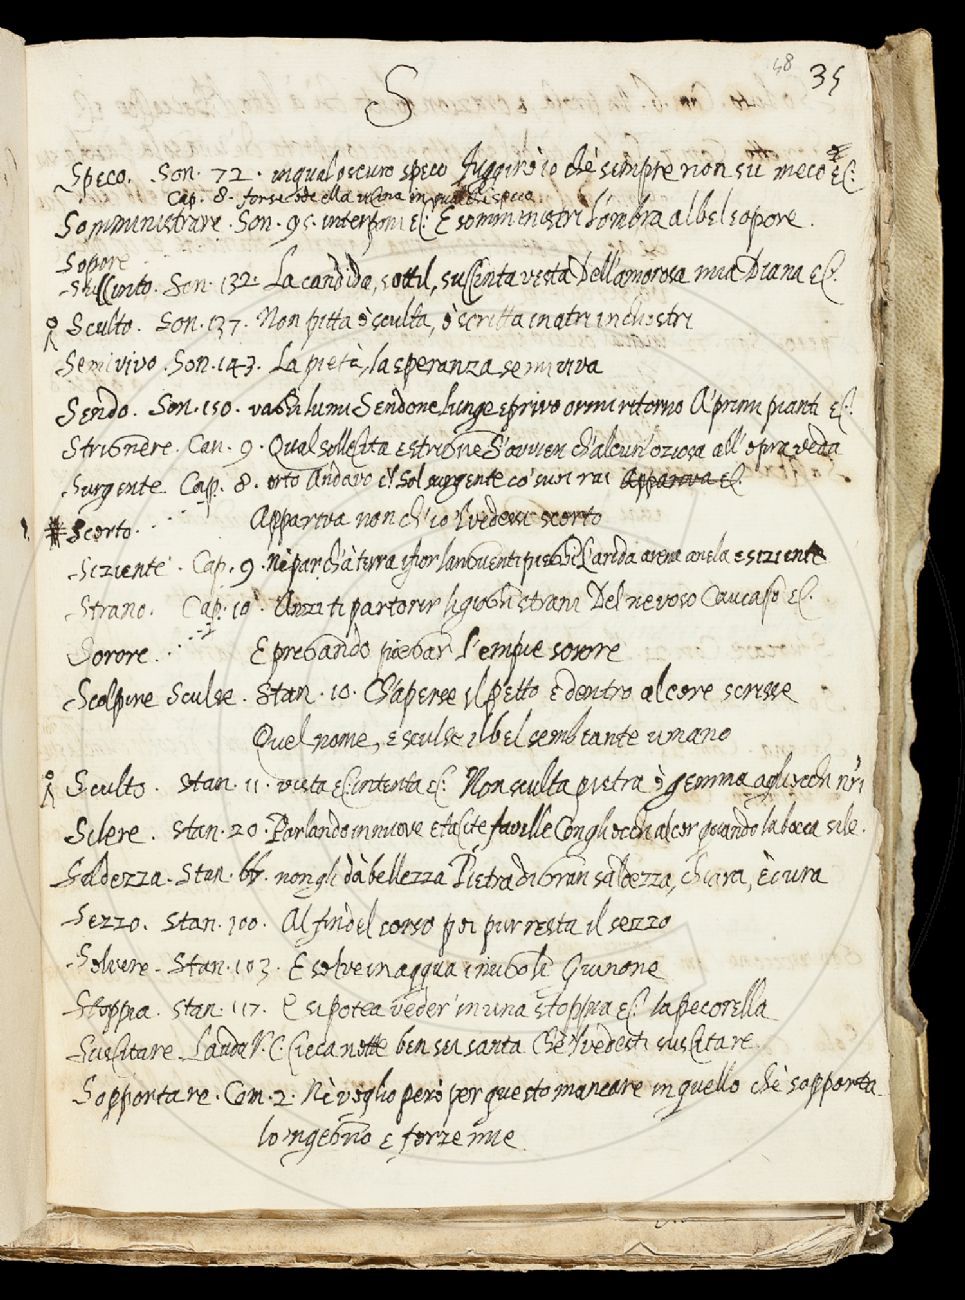 58 35
S
Speco. Son. 72. in qual oscuro speco fuggirò io che sempre non sii meco &c.
Cap. 8. forse che ella vicina in qualche speco
Somministrare. Son. 95. &c. E somministri l'ombra al bel sopore.
Sopore
Succinto. Son. 132. La candida, sottil, succinta vesta Dell'amorosa mia Diana &c.
Sculto. Son. 137. Non pitta ò sculta, ò scritta in atri inchiostri
Semivivo. Son. 143. La pietà, la speranza semiviva
Sendo. Son. 150. vaghi lumi Sendone lunge e privo ormi ritorno A' primi pianti &c.
Strignere. Can. 9. Qual sollecita e strigne S'avvien ch'alcun' oziosa all'opra veda
Surgente. Cap. 8. orto Andavo e'l Sol surgente co' suoi rai Appariva &c.
Scorto. Appariva non ch'io'l vedessi scorto
Siziente. Cap. 9. Nè par ch'à terra i fior languenti pieghi L'arida arena anela e siziente
Strano. Cap. 10. Anzi ti partorir li gioghi strani Del nevoso Caucaso &c.
Sorore. E pregando piegar l'empie sorore
Scolpire Sculse. Stan. 10. Ch'aperse il petto e dentro al core scrisse
Quel nome, e sculse il bel sembiante umano
Sculto. Stan. 11. vista &c. intenta &c. Non sculta pietra ò gemma agli occhi nri
Silere. Stan. 20. Parlando in nuove e tacite faville Con gli occhi al cor quando la bocca sile.
Saldezza. Stan. non gli dà bellezza Pietra di gran saldezza, chiara, è cura
Sezzo. Stan. 100. Al fin del corso poi pur resta il sezzo
Solvere. Stan. 103. E solve in acqua i nuvoli Giunone
Stoppia. Stan. 117. E si potea veder' in una stoppia &c. la pecorella
Suscitare. Cieca notte ben sei santa Che'l vedesti suscitare.
Sopportare. Com. 2. Nè voglio però per questo mancare in quello che sopporta
lo ngegno e forze mie